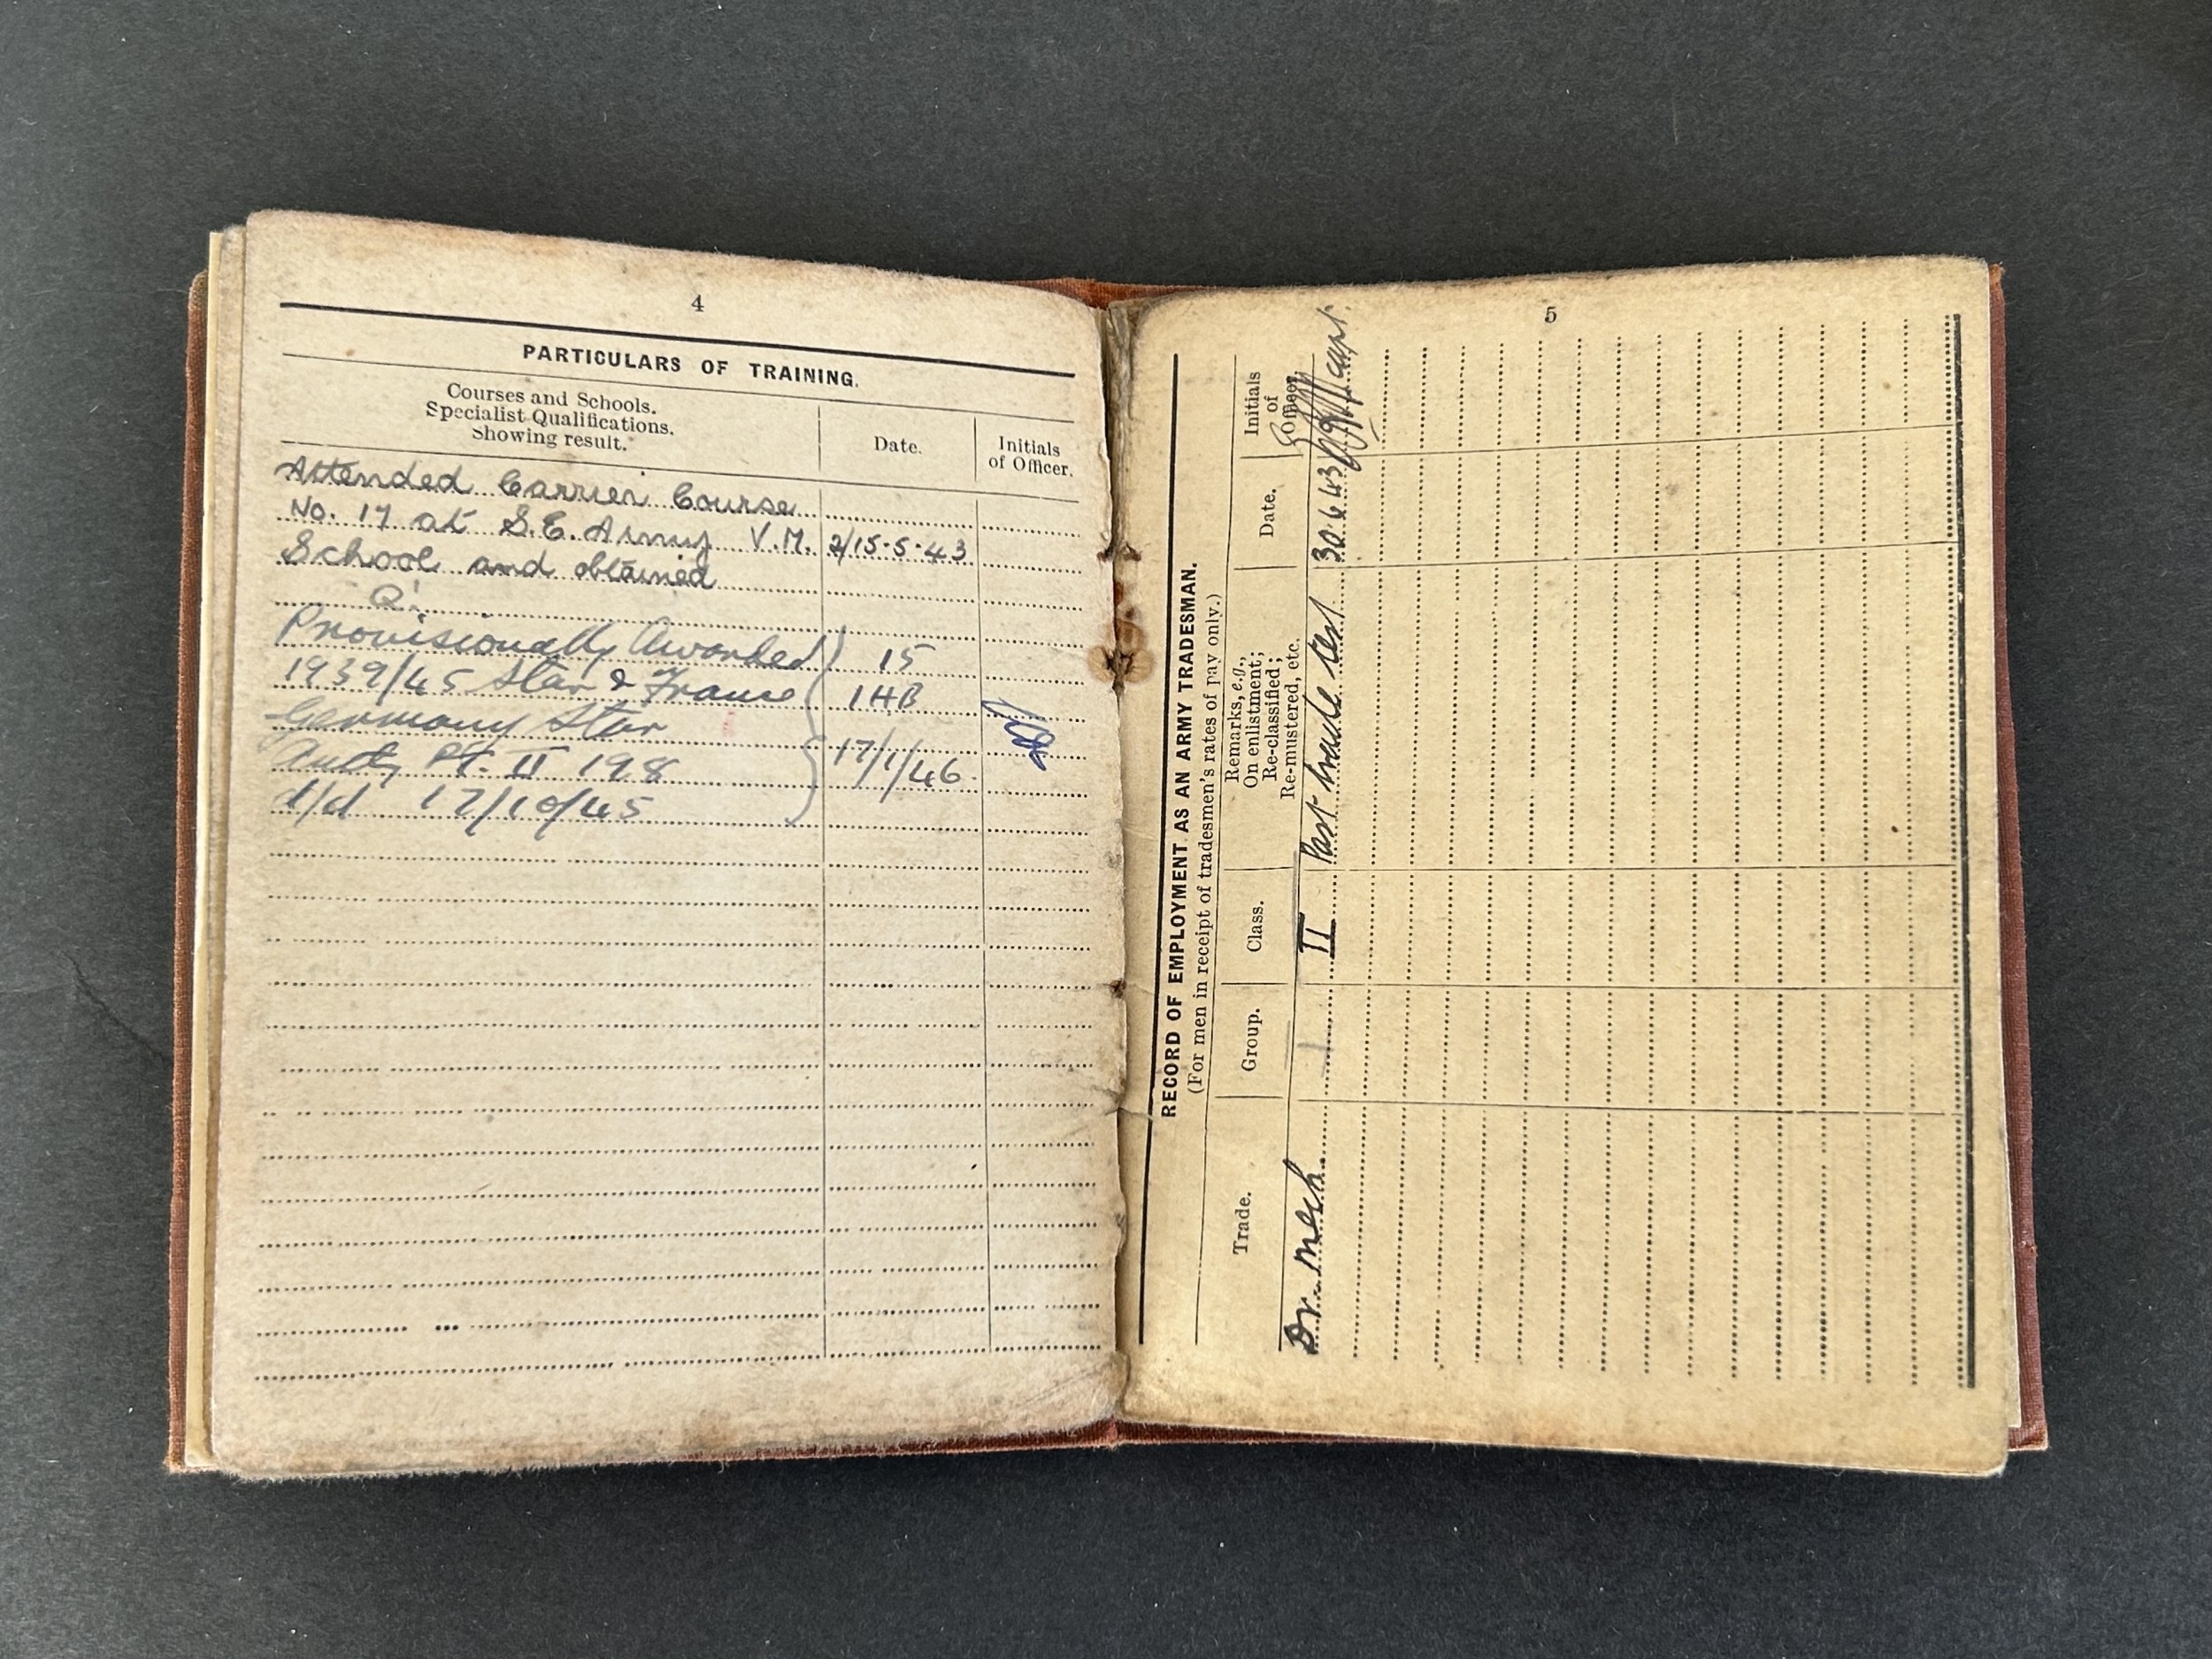 4
PARTICULARS OF TRAINING.
Courses and Schools.
Specialist Qualifications.
Showing result.
Date.
Initials
of Officer.
Attended Carrier Course
No. 17 at S.E. Army V.M. 2/15.5.43
School and obtained
Q1.
Provisionally Awarded 15
1939/45 Star & France 1HB
Germany Star
Auth Pt. II 198 17/1/46
d/d 17/10/45
5
RECORD OF EMPLOYMENT AS AN ARMY TRADESMAN.
(For men in receipt of tradesmen's rates of pay only.)
Trade.
Group.
Class.
Remarks, e.g.,
On enlistment;
Re-classified;
Re-mustered, etc.
Date.
Initials
of
Officer.
Dr. Mech. II Past trade test 30.6.43 Capt.